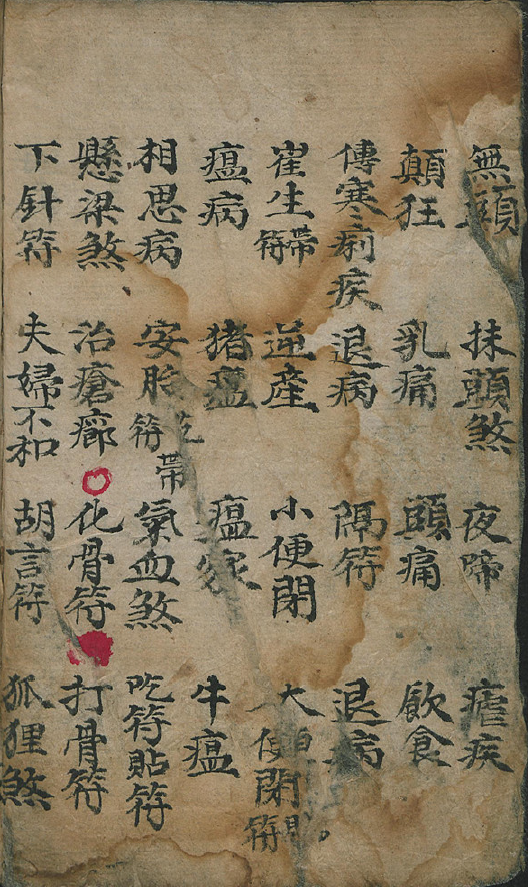 無頭 抹頭煞 夜啼 瘧疾
顛狂 乳痛 頭痛 飲食
傳寒痢疾 退病 隔符 退病
崔生帶符 逆産 小便閉 大便閉符
瘟病 猪瘟 瘟家 牛瘟
相思病 安胎符吃帶 氣血煞 吃符貼符
懸梁煞 治瘡癤 化骨符 打骨符
下針符 夫婦不和 胡言符 狐狸煞